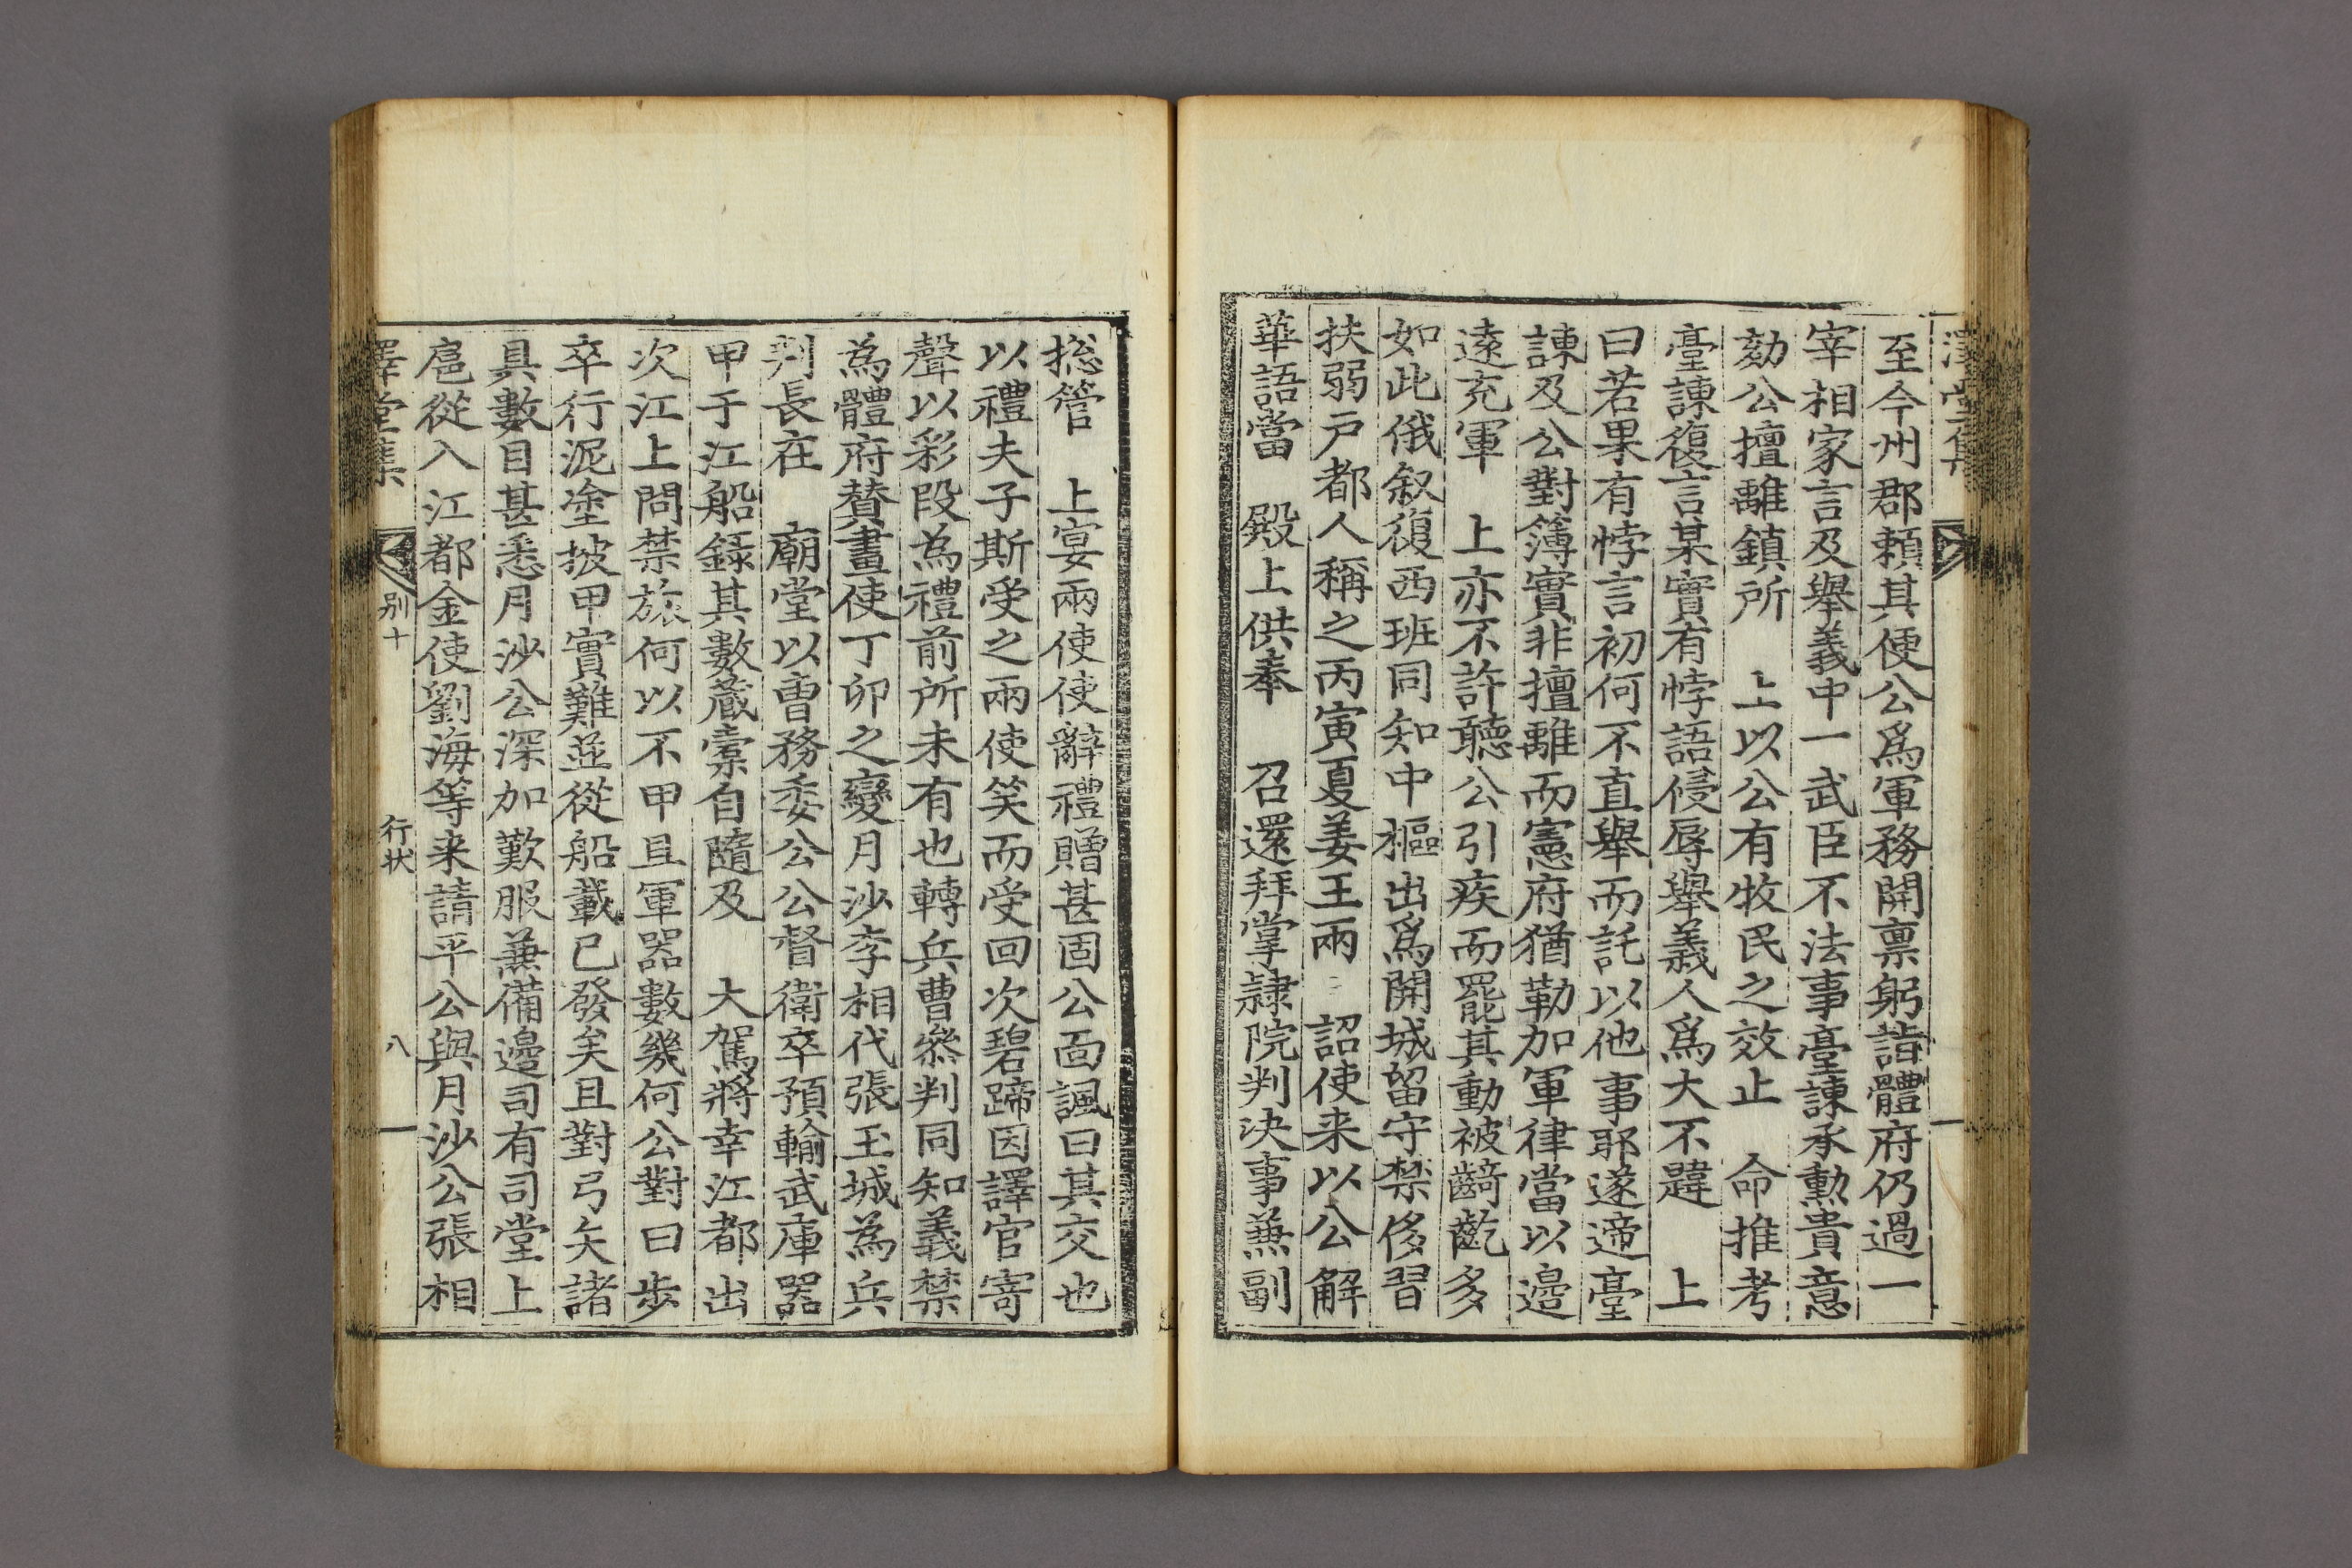 至今州郡賴其便公爲軍務開稟躬詣體府仍過一
宰相家言及舉義中一武臣不法事臺諫承勳貴意
劾公擅離鎮所　上以公有牧民之效止　命推考
臺諫復言某實有悖語侵辱舉義人爲大不韙　上
曰若果有悖言初何不直舉而託以他事耶遂遞臺
諫及公對簿實非擅離而憲府猶勒加軍律當以邊
遠充軍　上亦不許聽公引疾而罷其動被齮齕多
如此俄叙復西班同知中樞出爲開城留守禁侈習
扶弱戶都人稱之丙寅夏姜王兩　詔使来以公解
華語當　殿上供奉　召還拜掌隷院判決事兼副
捴管　上宴兩使使辭禮贈甚固公面諷曰其交也
以禮夫子斯受之兩使笑而受回次碧蹄因譯官寄
聲以彩段為禮前所未有也轉兵曹叅判同知義禁
為體府賛畫使丁卯之變月沙李相代張玉城為兵
判長在　廟堂以曺務委公公督衛卒預輸武庫器
甲于江船錄其數蔵橐自隨及　大駕將幸江都出
次江上問禁旅何以不甲且軍器數幾何公對曰步
卒行泥塗披甲實難並從船載已發矣且對弓矢諸
具數目甚悉月沙公深加歎服兼備邊司有司堂上
扈從入江都金使劉海等来請平公與月沙公張相
澤堂集　別十　行状　八